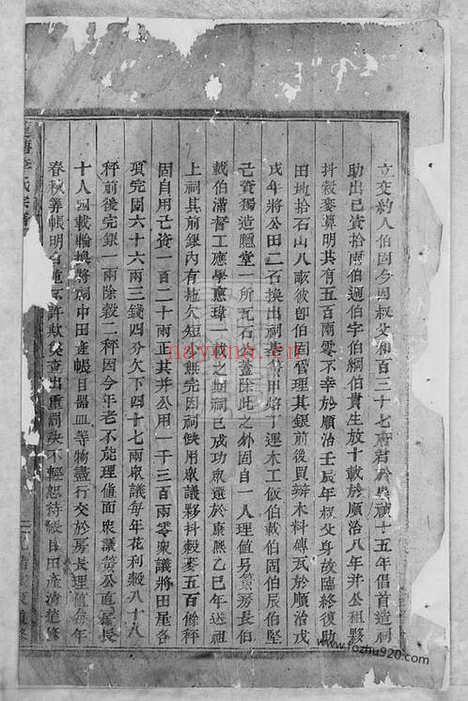 立交約人伯固今因叔父和百三十七府君於崇禎十五年倡首造祠
助出已資拾兩伯迥伯宇伯綱伯貴生放十載於順治八年并公祖夥
抖穀麥算明共有五百兩零不幸於順治壬辰年叔父身故臨終復助
田地拾石山八畝彼即伯固管理其銀前後買辦木料磚瓦於順治戊
戌年將公田二石換出祠基於甲焰丁運木工飯伯載伯固伯辰伯堅
己資獨造魈堂一所瓦石蓋除此之外固自一人理值另房長伯
載伯滿督工應學意瑋一載之州祠已成功眾選於康熙乙巳年送祖
上祠其前銀內有地欠短無完因祠缺用眾議夥抖穀麥五百餘秤
固自用己資一百二十兩正其并公用一千三百兩零眾議將田屋各
項完固六十六兩三錢四分欠下四十七兩眾議每年花利穀八十九
秤前後完銀一兩除穀二秤固今年老不能理值面眾議公直房長
十人四載輪換將祠中田產帳目器皿等物盡行交於房長理值每年
春秋算帳明白 許欺 查出重罰決不輕恕待後日田產清造修
氏宗譜
nayona.cn
www.fozhu920.com